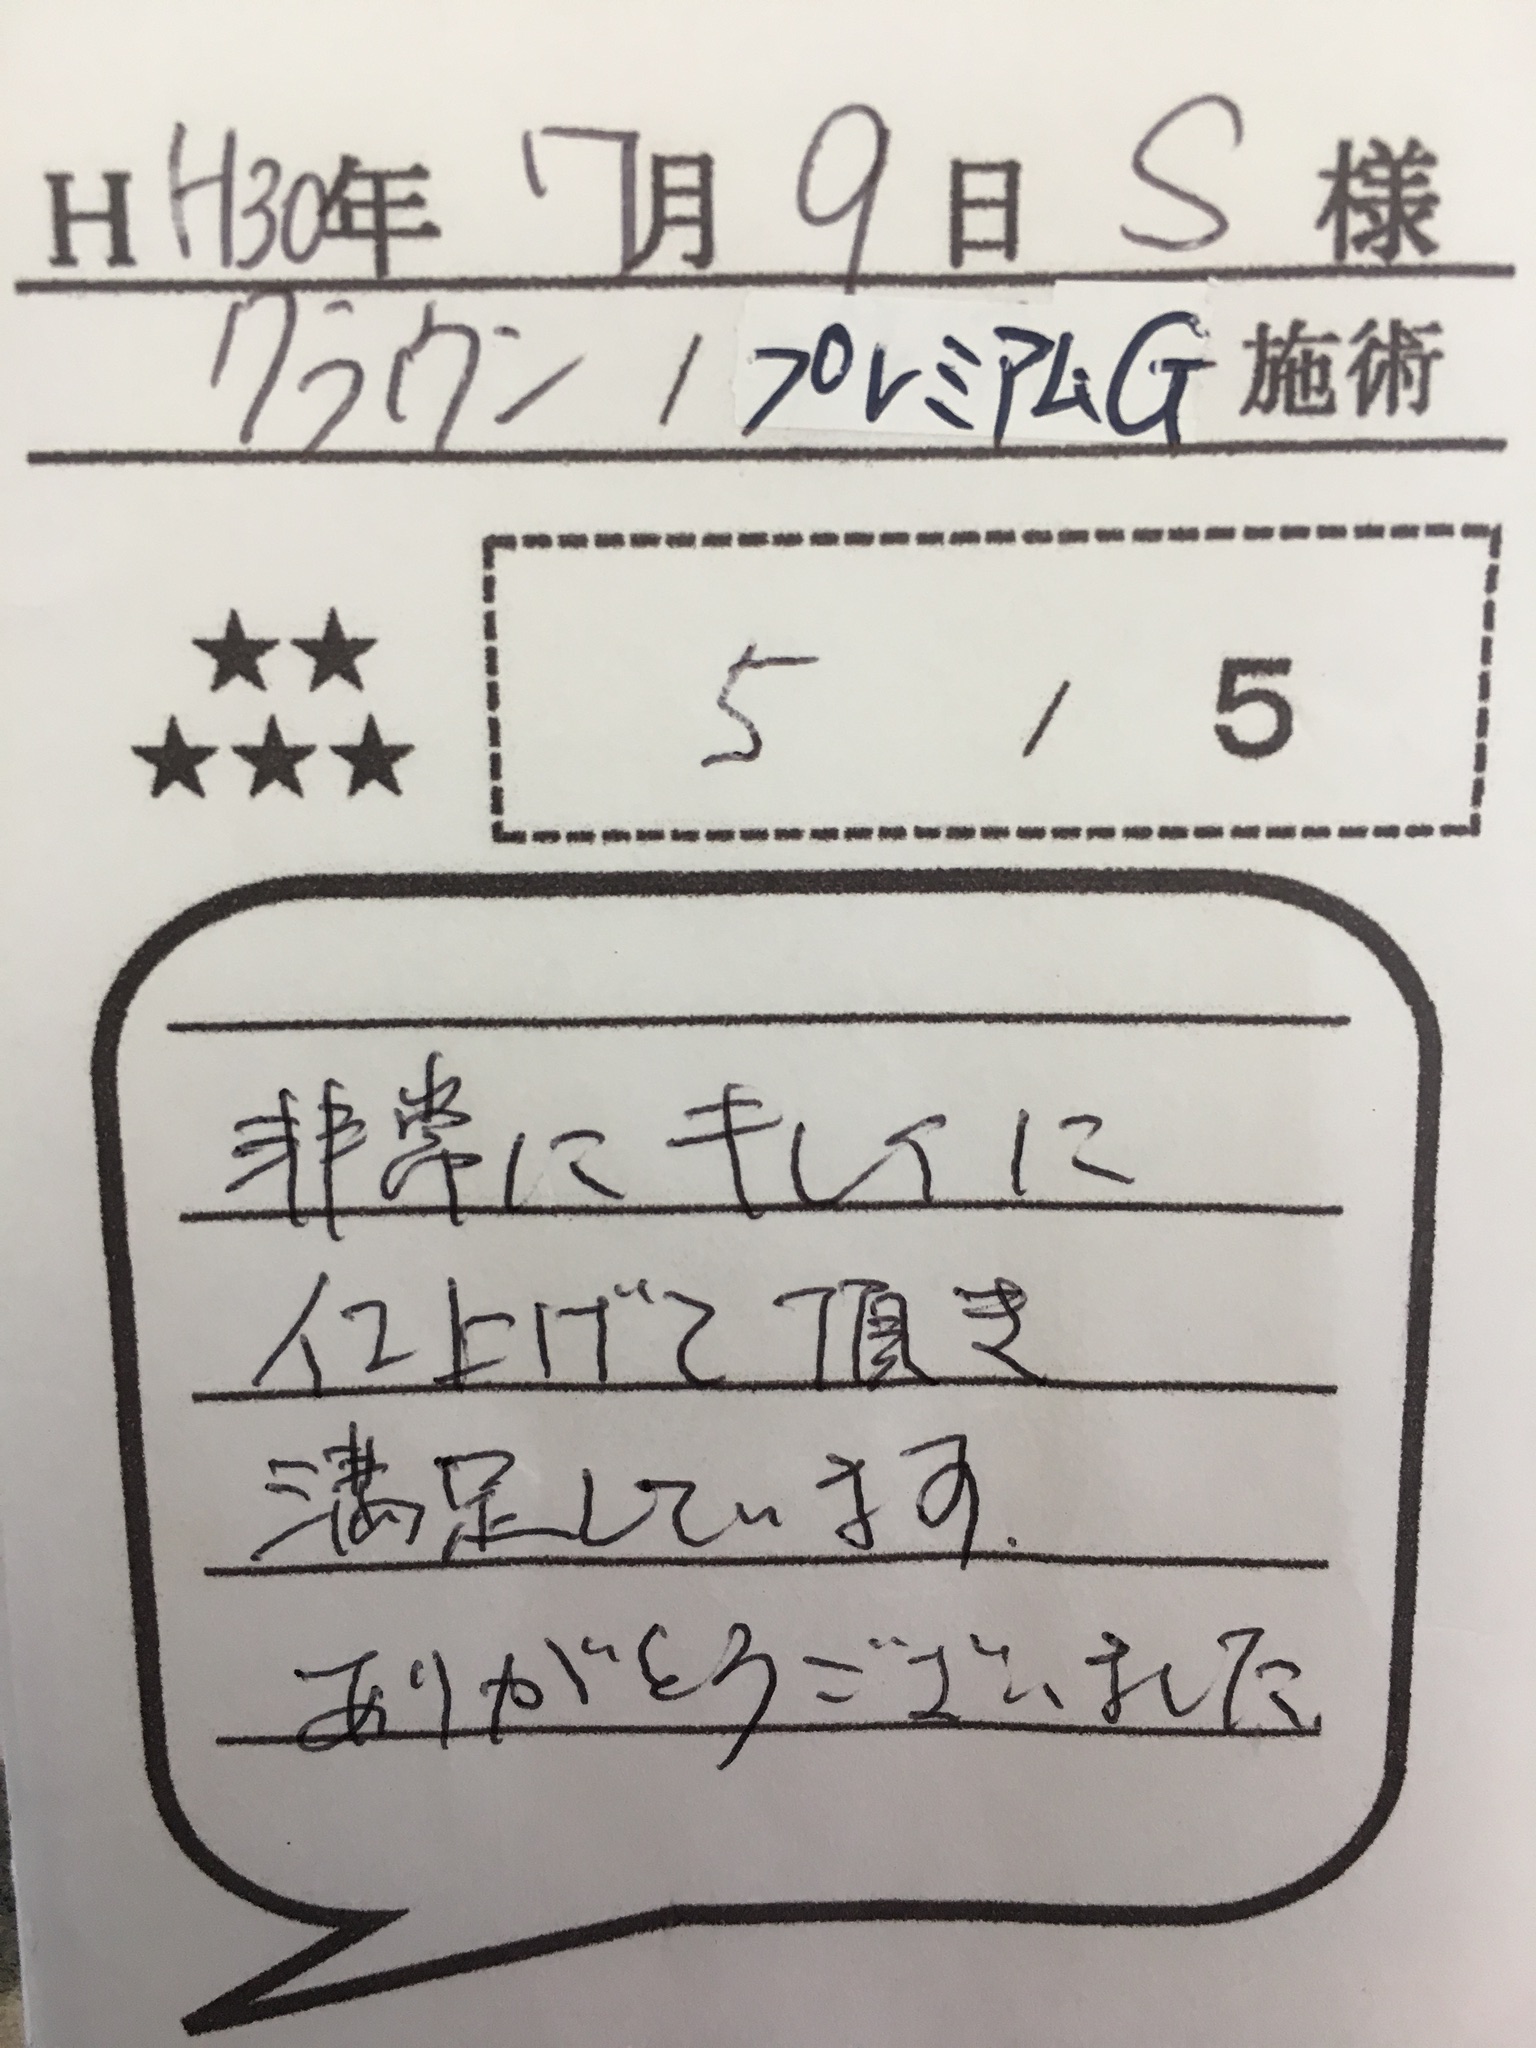 H H30年 7月 9日 S 様
クラウン / プレミアムG 施術
★★
★★★
5 / 5
非常にキレイに
仕上げて頂き
満足しています.
ありがとうございました